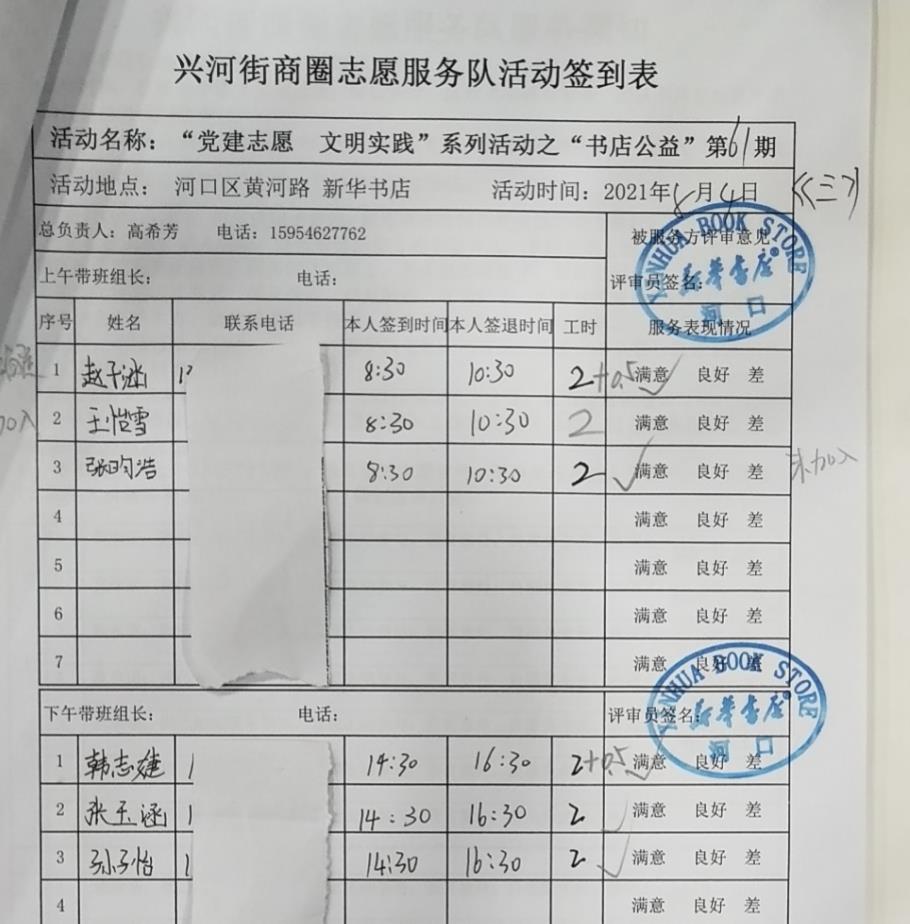 兴河街商圈志愿服务队活动签到表
活动名称：“党建志愿 文明实践”系列活动之“书店公益”第61期
活动地点： 河口区黄河路 新华书店 活动时间：2021年8月4日 (三)
总负责人：高希芳 电话：15954627762 被服务方评审意见
上午带班组长： 电话： 评审员签名：
XINHUA BOOK STORE
新华书店
河口
序号 姓名 联系电话 本人签到时间 本人签退时间 工时 服务表现情况
1 赵子涵 8:30 10:30 2+0.5 ✓ 满意 良好 差
2 王怡雪 8:30 10:30 2 满意 良好 差
加入
3 张昀浩 8:30 10:30 2 ✓ 满意 良好 差 未加入
4 满意 良好 差
5 满意 良好 差
6 满意 良好 差
7 满意 良好 差
下午带班组长： 电话： 评审员签名：
XINHUA BOOK STORE
新华书店
河口
1 韩志婕 14:30 16:30 2+0.5 ✓ 满意 良好 差
2 张玉涵 14:30 16:30 2 ✓ 满意 良好 差
3 孙子怡 14:30 16:30 2 ✓ 满意 良好 差
4 满意 良好 差